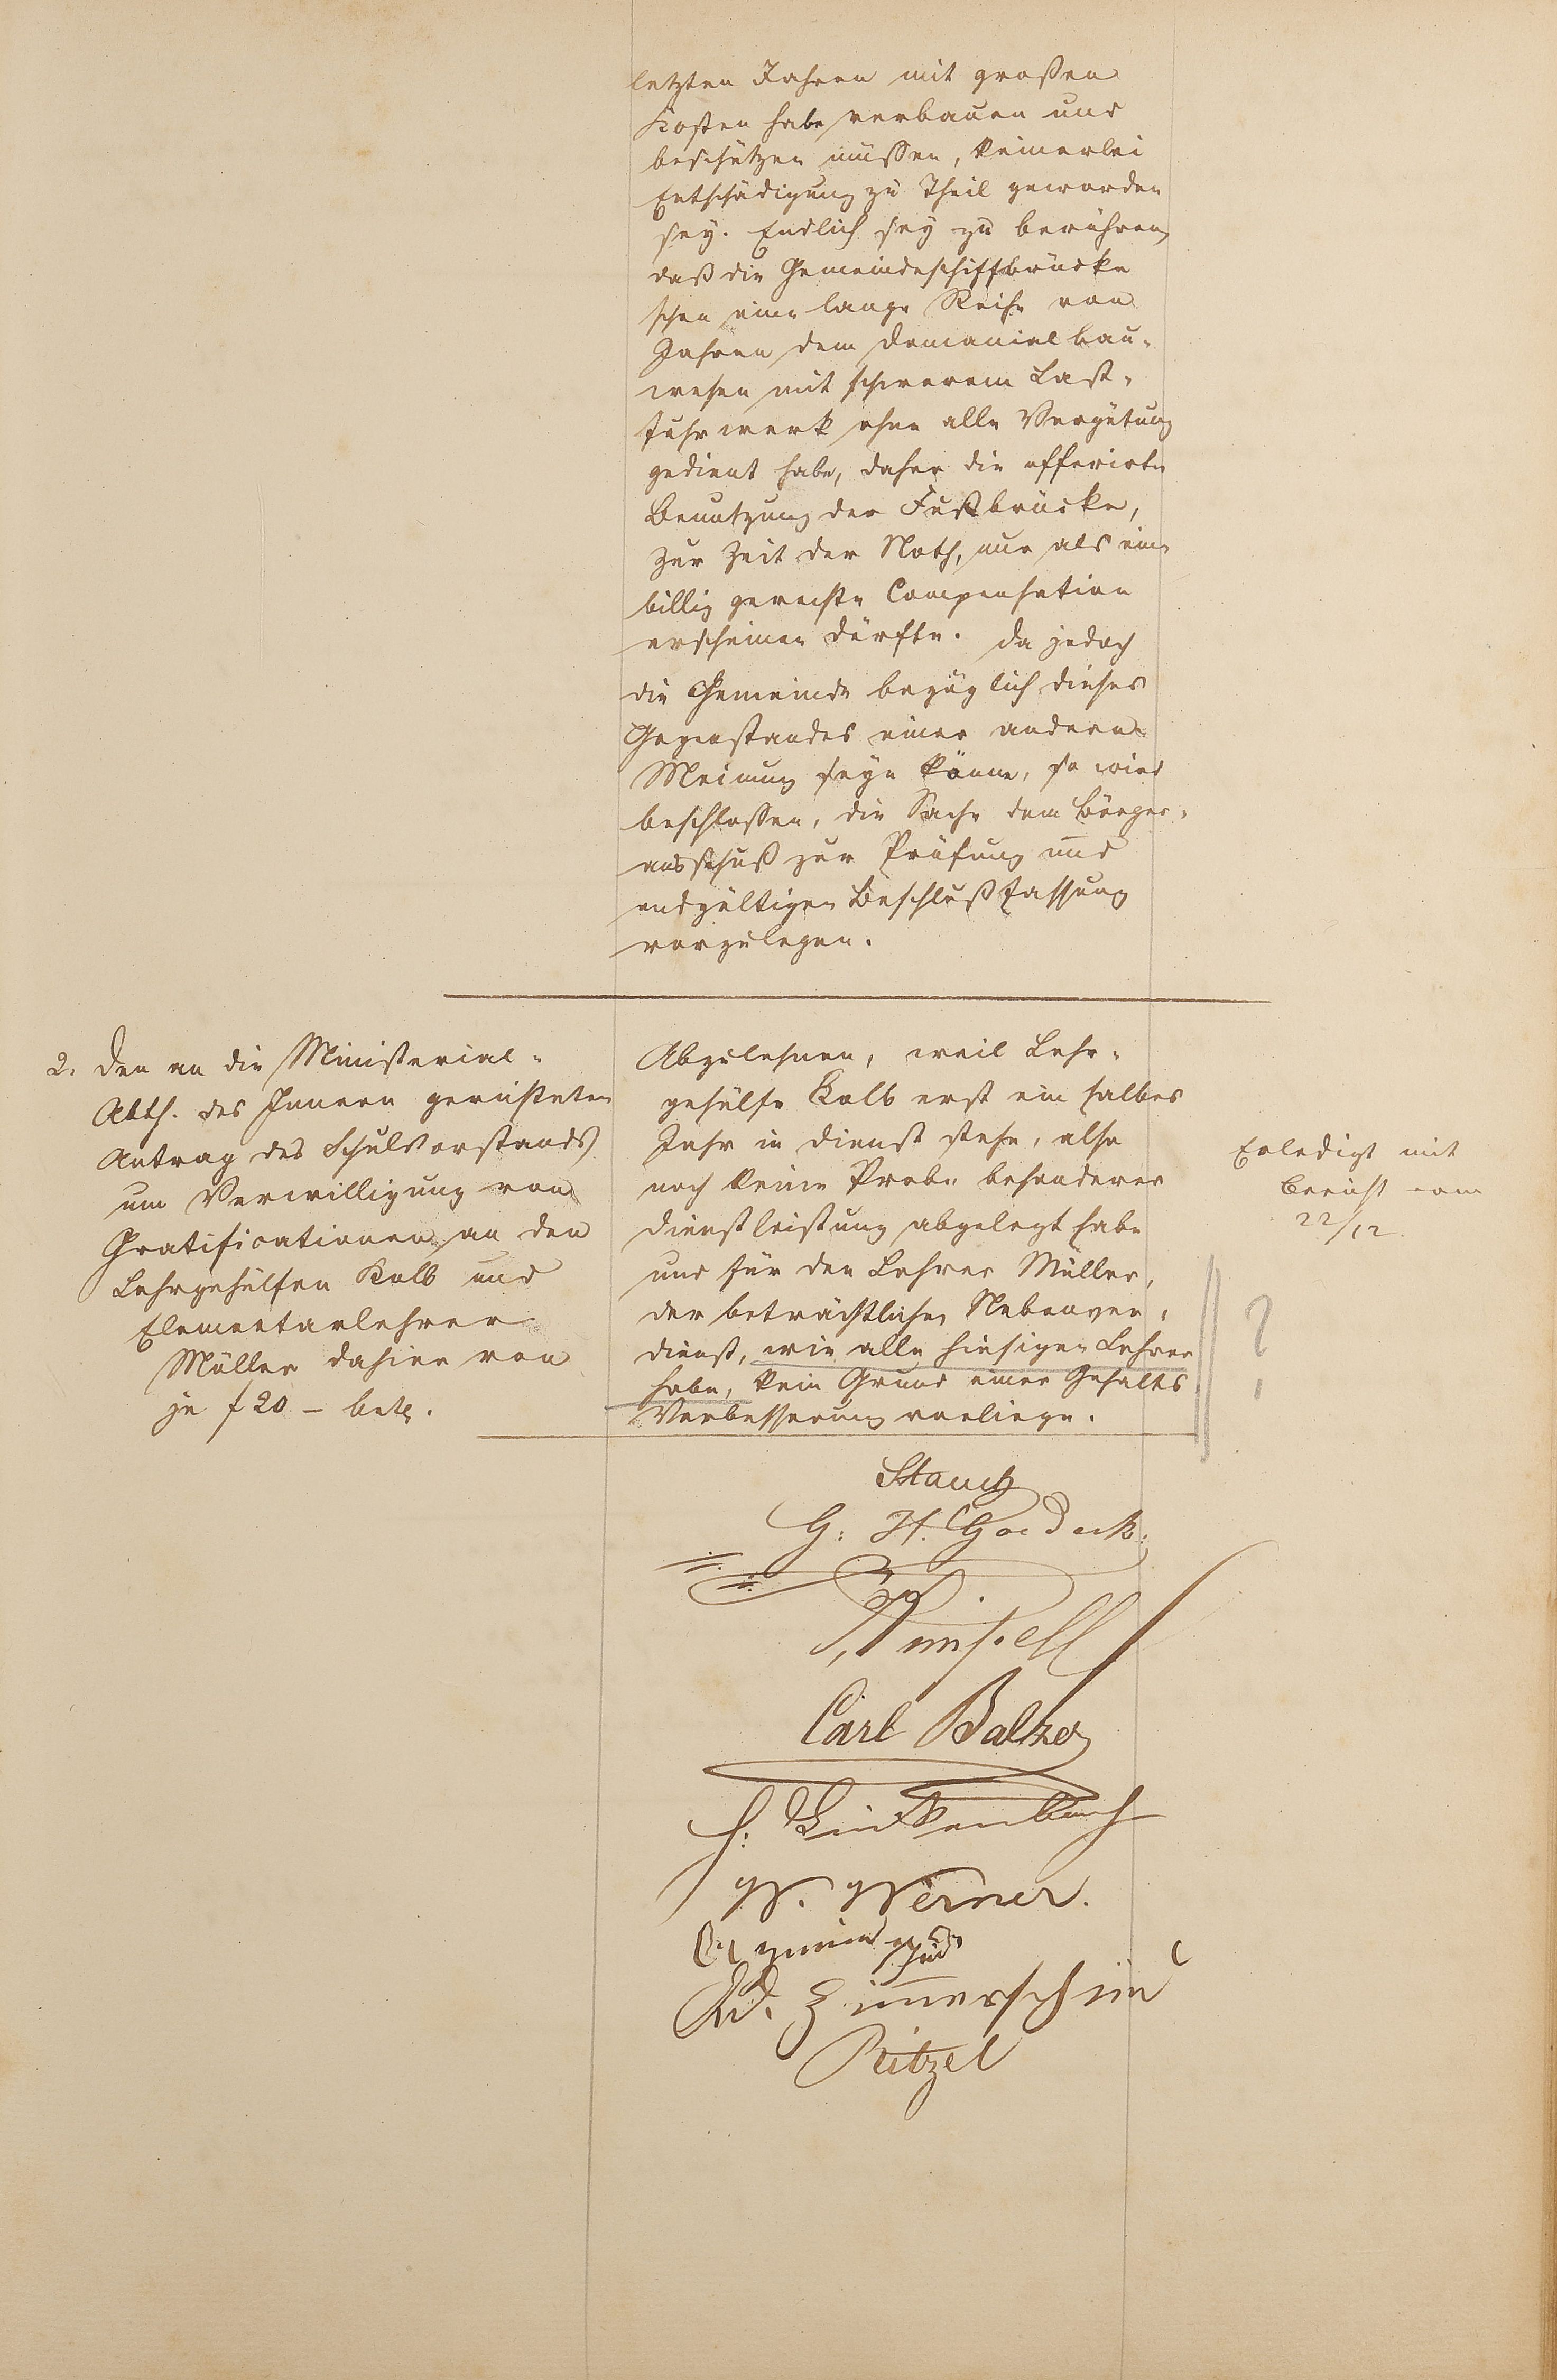 letzten Jahren mit großen
Kosten habe verbauen und
beschützen müssen, keinerlei
Entschädigung zu Theil geworden
sey. Endlich sey zu berühren,
daß die Gemeindeschiffbrücke
schon eine lange Reihe von
Jahren dem Domanialbau-
wesen mit schwerem Last-
fuhrwerk ohne alle Vergütung
gedient habe, daher die offerirte
Benutzung der Fußbrücke,
zur Zeit der Noth, nur als eine
billig gerechte Compensation
erscheinen dürfte. Da jedoch
die Gemeinde bezüglich dieses
Gegenstandes einer anderen
Meinung seyn könne, so wird
beschlossen, die Sache dem Bürger-
ausschuß zur Prüfung und
endgültigen Beschlußfassung
vorzulegen.
2. Den an die Ministerial-
Abth. des Innern gerichteten
Antrag des Schulvorstands
um Verwilligung von
Gratificationen an den
Lehrgehülfen Kolb und
Elementarlehrer
Müller dahier von
je f 20 – betr.
Abzulehnen, weil Lehr-
gehülfe Kolb erst ein halbes
Jahr in Dienst stehe, also
noch keine Probe besonderer
Dienstleistung abgelegt habe
und für den Lehrer Müller,
der beträchtlichen Nebenver-
dienst, wie alle hiesigen Lehrer
habe, kein Grund einer Gehalts
Verbesserung vorliege.
Erledigt mit
Bericht vom
22/12.
?
Stauch
G. H. Goedeck
Rumpell
Carl Balzer
W. Werner.
Ad. Zimmerschied
Ritzel